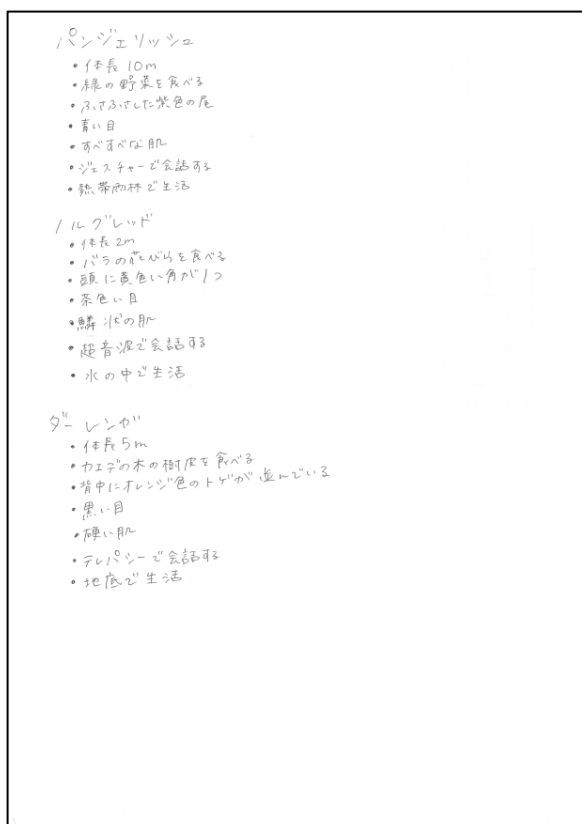 パンジェリッシュ
・体長 10m
・緑の野菜を食べる
・ふさふさした紫色の尾
・青い目
・すべすべな肌
・ジェスチャーで会話する
・熱帯雨林で生活
ノルグレッド
・体長 2m
・バラの花びらを食べる
・頭に黄色い角が1つ
・茶色い目
・鱗状の肌
・超音波で会話する
・水の中で生活
ダーレンガ
・体長 5m
・カエデの木の樹皮を食べる
・背中にオレンジ色のトゲが並んでいる
・黒い目
・硬い肌
・テレパシーで会話する
・地底で生活